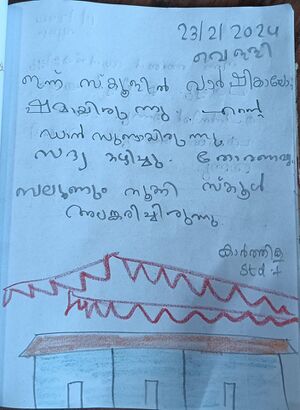 23/2/2024
വെള്ളി
ഇന്ന് സ്കൂളിൽ വാർഷികാഘോ
ഷമായിരുന്നു. എന്റെ
ഡാൻസുണ്ടായിരുന്നു.
സദ്യ കഴിച്ചു. തോരണവും
ബലൂണും തൂക്കി സ്കൂൾ
അലങ്കരിച്ചിരുന്നു
കാർത്തിക
Std